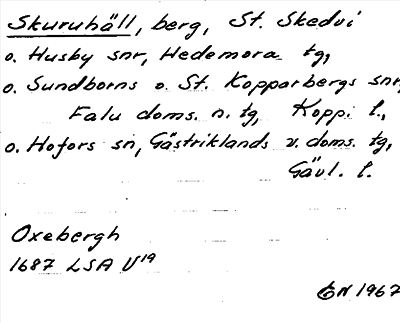 Skuruhäll, berg, St. Skedvi
o. Husby snr, Hedemora tg,
o. Sundborns o. St. Kopparbergs snr,
Falu doms. n. tg Kopp. l.,
o. Hofors sn, Gästriklands v. doms. tg,
Gävl. l.
Oxebergh
1687 LSA U19
GN 1967